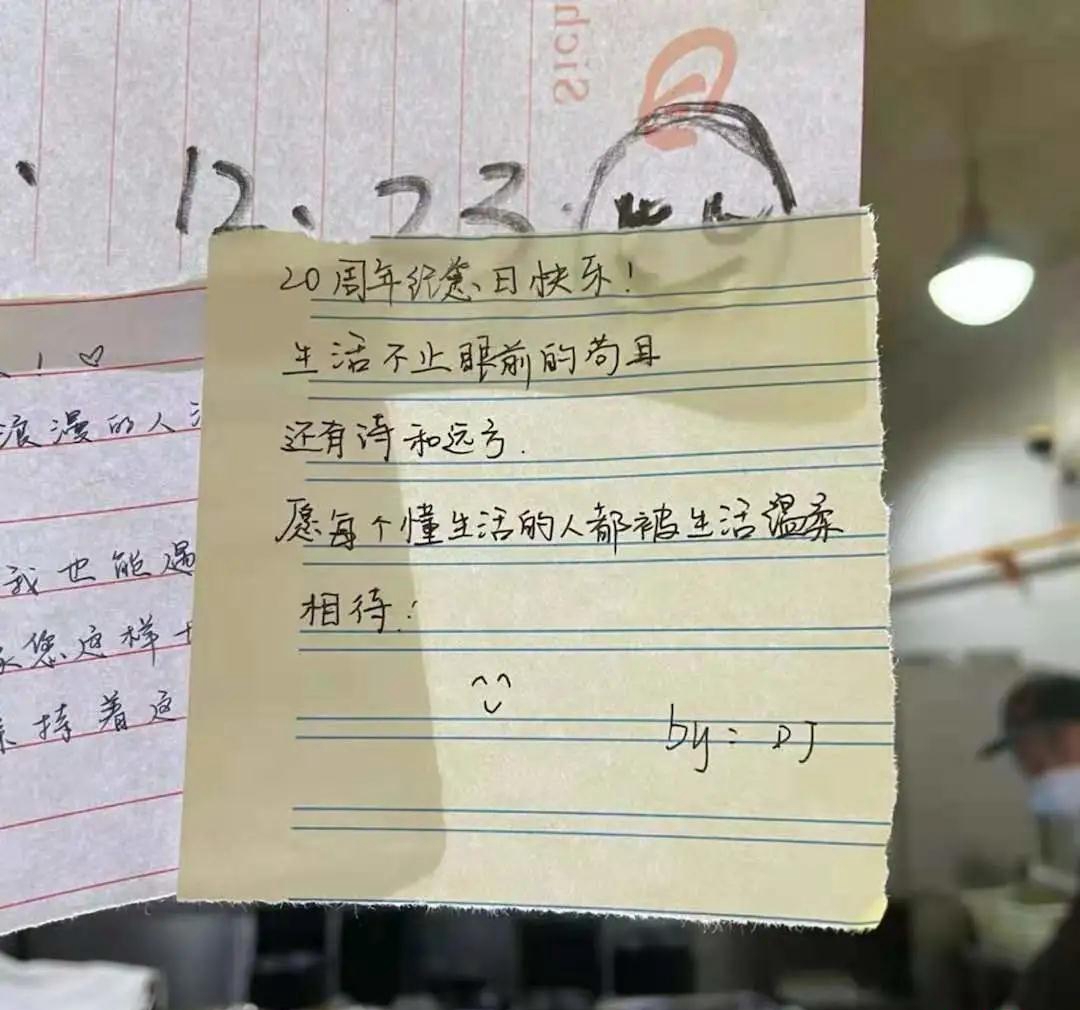 Sich
12、23.
20周年纪念日快乐!
生活不止眼前的苟且
还有诗和远方.
愿每个懂生活的人都被生活温柔
相待:
by: DJ
浪漫的人
我也能遇
您这样
持着这